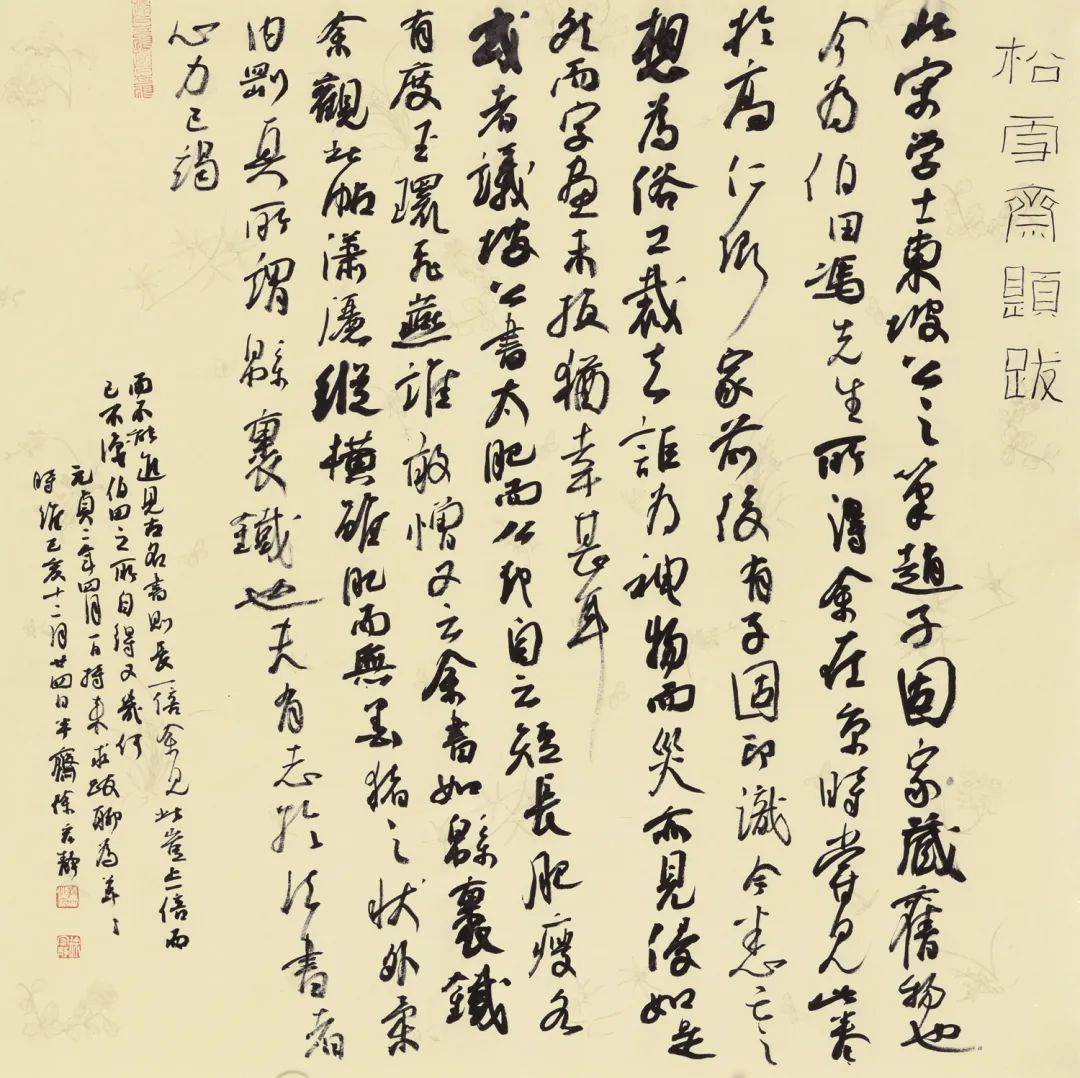 松雪齋題跋
此宋学士東坡公之筆趙子固家藏舊物也
今为伯田馮先生所得余在京時嘗見此卷
於高仁卿家前後有子固印識今悉亡之
想為俗工裁去詎为神物而災亦見侵如是
然而字畫未拔猶幸甚耳
或者議坡公書太肥而公却自云短長肥瘦各
有度玉環飛燕誰敢憎又云余書如緜裹鐵
余觀此帖瀟灑縱横雖肥而無墨猪之状外柔
内剛真所謂緜裹鐵也夫有志於法書者
心力已竭
而不能進見古名書則長一倍余見此豈止一倍而
已不復伯田之所自得又幾何
元貞二年四月一日持来求跋聊為草々
時維己亥十二月廿四日半齋徐君静